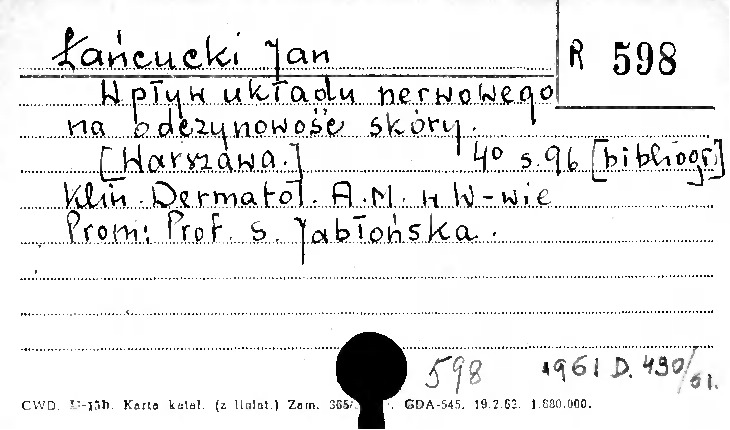 Łańcucki Jan
R 598
Wpływ układu nerwowego
na odczynowość skóry.
[Warszawa.] 4° s. 96 [bibliogr.]
Klin. Dermatol. A.M. w W-wie
Prom: Prof. S. Jabłońska.
598 1961 D. 490/61.
CWD. Karta katal. (z liniat.) Zam. GDA-545. 19.2.62. 1.680.000.